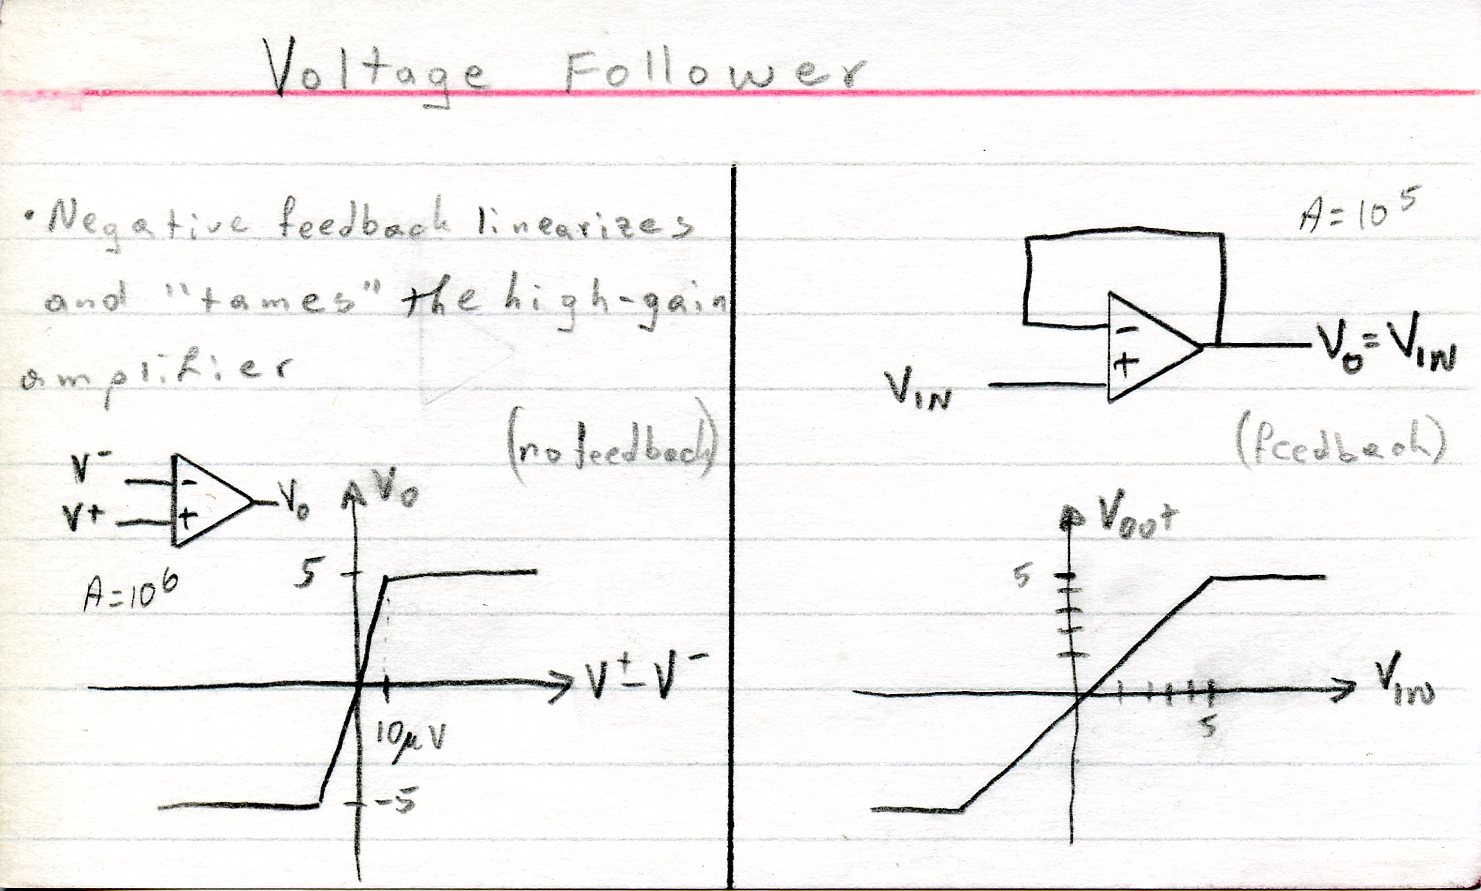 Voltage Follower
• Negative feedback linearizes
and "tames" the high-gain
amplifier
(no feedback)
V-
V+
-
+
Vo
A=10^6
Vo
5
V+ - V-
10μV
-5
A=10^5
-
+
VIN
Vo=VIN
(feedback)
Vout
5
VIN
5